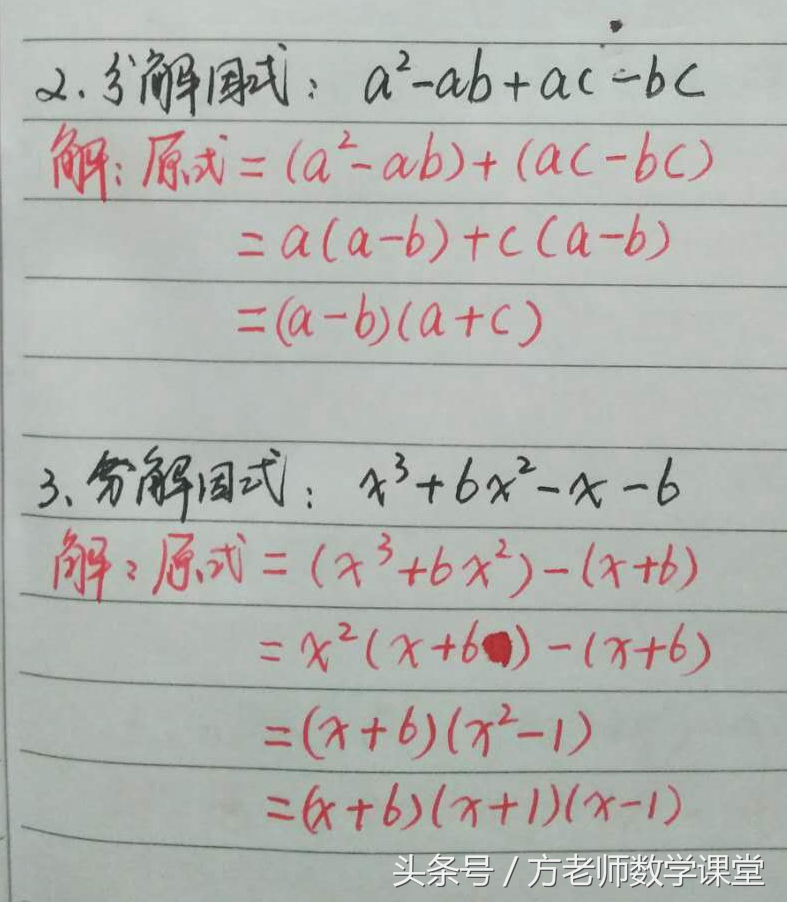 2、分解因式：a²-ab+ac-bc
解：原式=(a²-ab)+(ac-bc)
=a(a-b)+c(a-b)
=(a-b)(a+c)
3、分解因式：x³+6x²-x-6
解：原式=(x³+6x²)-(x+6)
=x²(x+6)-(x+6)
=(x+6)(x²-1)
=(x+6)(x+1)(x-1)
头条号 / 方老师数学课堂